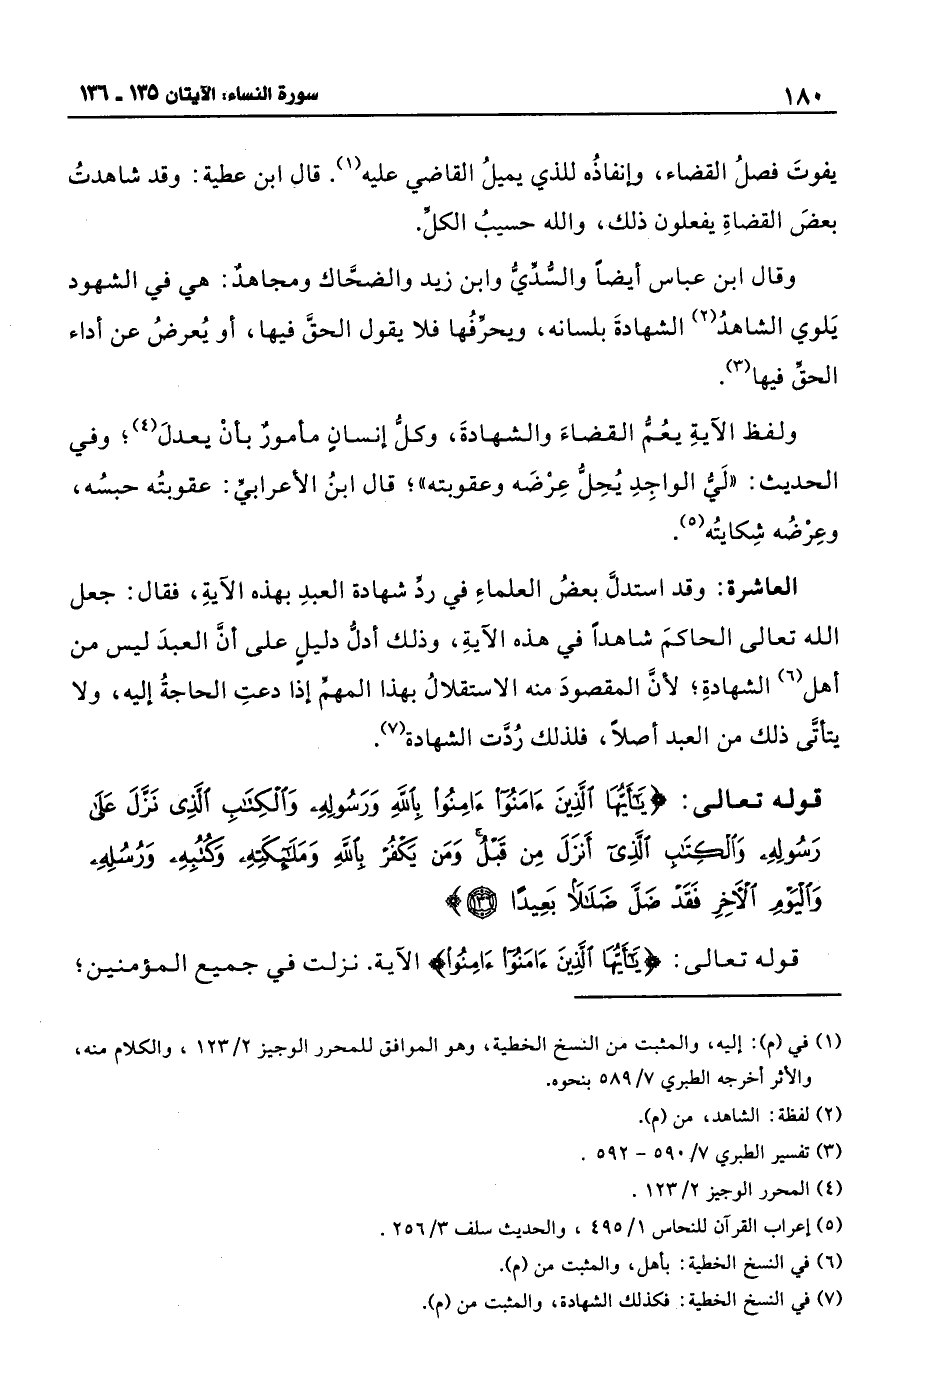 ١٨٠ سورة النساء: الآيتان ١٣٥ ـ ١٣٦
يفوتَ فصلُ القضاء، وإنفاذُه للذي يميلُ القاضي عليه(١). قال ابن عطية: وقد شاهدتُ
بعضَ القضاةِ يفعلون ذلك، والله حسيبُ الكلِّ.
وقال ابن عباس أيضاً والسُّدِّيُّ وابن زيد والضحَّاك ومجاهدٌ: هي في الشهود
يَلوي الشاهدُ(٢) الشهادةَ بلسانه، ويحرِّفُها فلا يقول الحقَّ فيها، أو يُعرضُ عن أداء
الحقِّ فيها(٣).
ولفظ الآيةِ يعُمُّ القضاءَ والشهادةَ، وكلُّ إنسانٍ مأمورٌ بأنْ يعدلَ(٤)؛ وفي
الحديث: «لَيُّ الواجِدِ يُحِلُّ عِرْضَه وعقوبته»؛ قال ابنُ الأعرابيِّ: عقوبتُه حبسُه،
وعِرْضُه شِكايتُه(٥).
العاشرة: وقد استدلَّ بعضُ العلماءِ في ردِّ شهادة العبدِ بهذه الآيةِ، فقال: جعل
الله تعالى الحاكمَ شاهداً في هذه الآيةِ، وذلك أدلُّ دليلٍ على أنَّ العبدَ ليس من
أهل(٦) الشهادةِ؛ لأنَّ المقصودَ منه الاستقلالُ بهذا المهمِّ إذا دعتِ الحاجةُ إليه، ولا
يتأتَّى ذلك من العبد أصلاً، فلذلك رُدَّت الشهادة(٧).
قوله تعالى: ﴿يَٰٓأَيُّهَا ٱلَّذِينَ ءَامَنُوٓا۟ ءَامِنُوا۟ بِٱللَّهِ وَرَسُولِهِۦ وَٱلْكِتَٰبِ ٱلَّذِى نَزَّلَ عَلَىٰ
رَسُولِهِۦ وَٱلْكِتَٰبِ ٱلَّذِىٓ أَنزَلَ مِن قَبْلُ ۚ وَمَن يَكْفُرْ بِٱللَّهِ وَمَلَٰٓئِكَتِهِۦ وَكُتُبِهِۦ وَرُسُلِهِۦ
وَٱلْيَوْمِ ٱلْـَٔاخِرِ فَقَدْ ضَلَّ ضَلَٰلًۢا بَعِيدًا ١٣٦﴾
قوله تعالى: ﴿يَٰٓأَيُّهَا ٱلَّذِينَ ءَامَنُوٓا۟ ءَامِنُوا۟﴾ الآية. نزلت في جميع المؤمنين؛
(١) في (م): إليه، والمثبت من النسخ الخطية، وهو الموافق للمحرر الوجيز ٢/ ١٢٣ ، والكلام منه،
والأثر أخرجه الطبري ٧/ ٥٨٩ بنحوه.
(٢) لفظة: الشاهد، من (م).
(٣) تفسير الطبري ٧/ ٥٩٠ - ٥٩٢ .
(٤) المحرر الوجيز ٢/ ١٢٣ .
(٥) إعراب القرآن للنحاس ١/ ٤٩٥ ، والحديث سلف ٣/ ٢٥٦ .
(٦) في النسخ الخطية: بأهل، والمثبت من (م).
(٧) في النسخ الخطية: فكذلك الشهادة، والمثبت من (م).